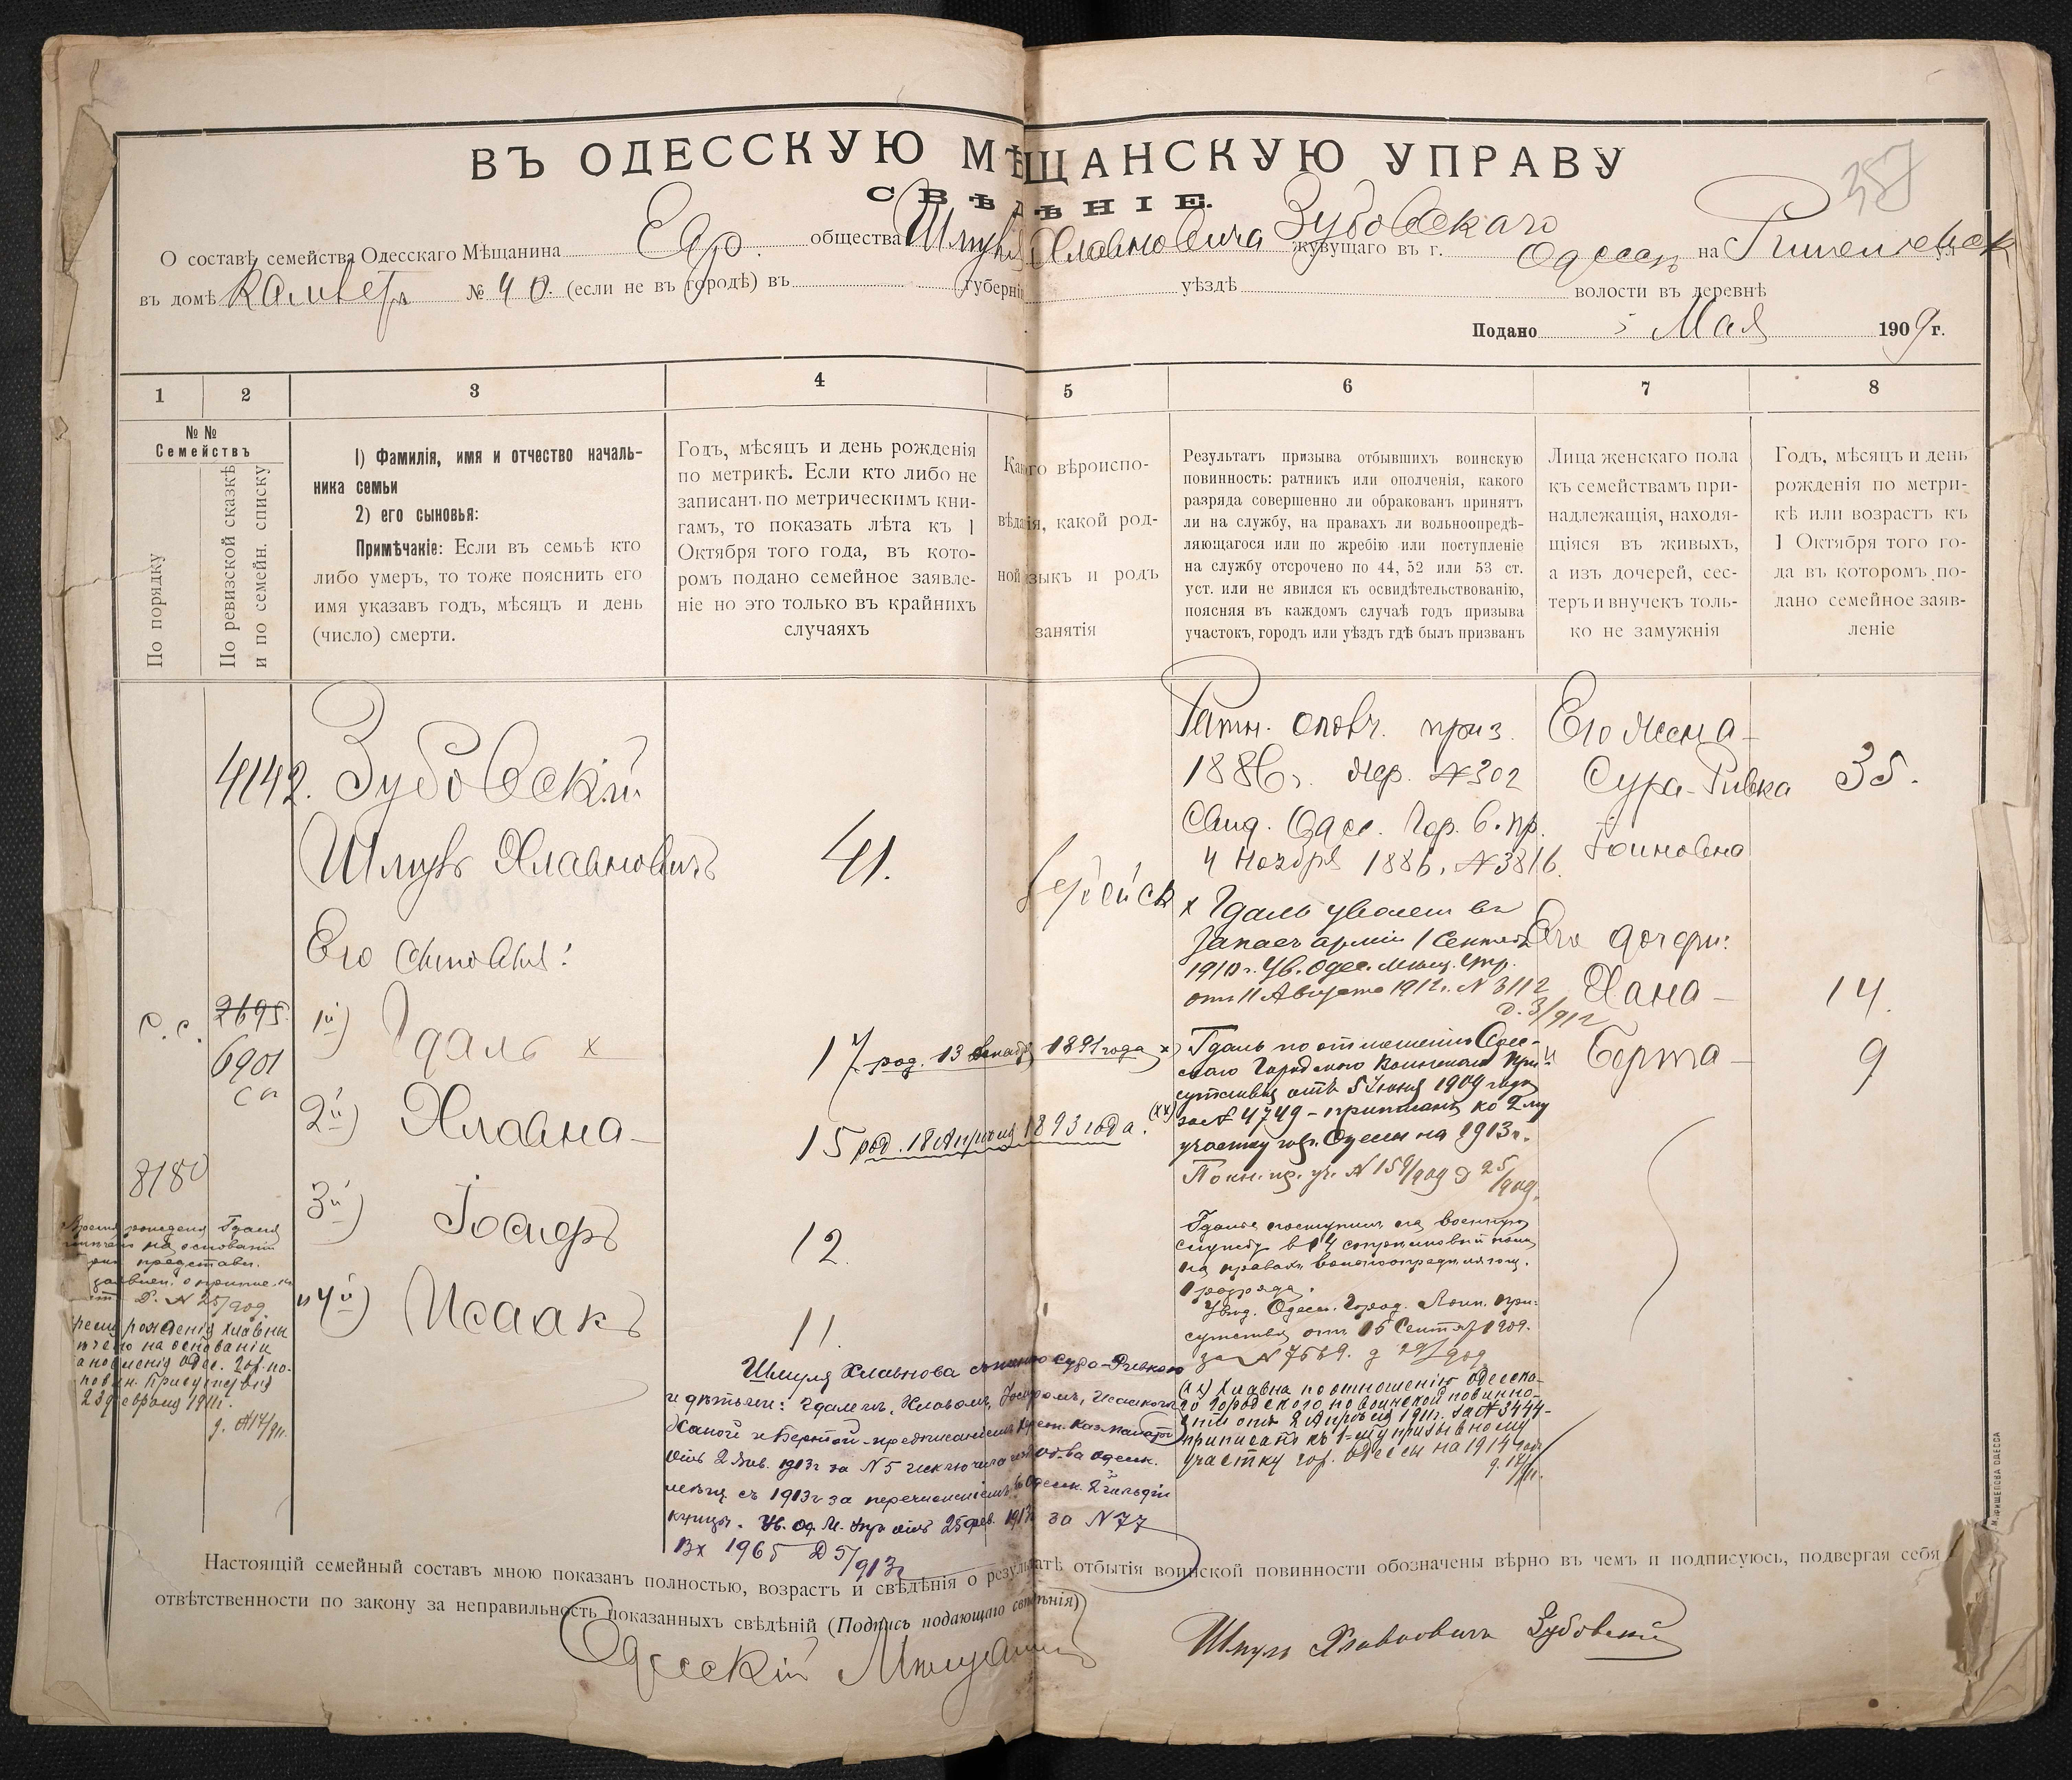 ВЪ ОДЕССКУЮ МѢЩАНСКУЮ УПРАВУ
СВѢДѢНІЕ.
О составѣ семейства Одесскаго Мѣщанина Евр. общества Шмуля Хлавновича Зубовскаго жувущаго въ г. Одессѣ на
въ домѣ № 40. (если не въ городѣ) въ губерніи уѣздѣ волости въ деревнѣ
Подано 5 Мая 1909 г.
1 2 3 4 5 6 7 8
№ №
Семействъ
По порядку
По ревизской сказкѣ
и по семейн. списку
1) Фамилія, имя и отчество началь-
ника семьи
2) его сыновья:
Примѣчаніе: Если въ семьѣ кто
либо умеръ, то тоже пояснить его
имя указавъ годъ, мѣсяцъ и день
(число) смерти.
Годъ, мѣсяцъ и день рожденія
по метрикѣ. Если кто либо не
записанъ по метрическимъ кни-
гамъ, то показать лѣта къ 1
Октября того года, въ кото-
ромъ подано семейное заявле-
ніе но это только въ крайнихъ
случаяхъ
Какого вѣроиспо-
вѣданія, какой род-
ной языкъ и родъ
занятія
Результатъ призыва отбывшихъ воинскую
повинность: ратникъ или ополченія, какого
разряда совершенно ли обракованъ принятъ
ли на службу, на правахъ ли вольноопредѣ-
ляющагося или по жребію или поступленіе
на службу отсрочено по 44, 52 или 53 ст.
уст. или не явился къ освидѣтельствованію,
поясняя въ каждомъ случаѣ годъ призыва
участокъ, городъ или уѣздъ гдѣ былъ призванъ
Лица женскаго пола
къ семействамъ при-
надлежащія, находя-
щіяся въ живыхъ,
а изъ дочерей, сес-
теръ и внучекъ толь-
ко не замужнія
Годъ, мѣсяцъ и день
рожденія по метри-
кѣ или возрастъ къ
1 Октября того го-
да въ которомъ по-
дано семейное заяв-
леніе
4142. Зубовскій
Шмуль Хлавновичъ 41.
Его сыновья:
с. с. 2695 6901 1й) Гдаль x 17 род. 13 декабр. 1891 года x)
2й) Хлавна 15 род. 18 Апрѣля 1893 года. (xx)
8180 3й) Іосифъ 12.
и 4й) Исаакъ 11.
Еврейск
Ратн. ополч. приз.
1886 г. жер. № 302
Свид. Одес. Гор. в. пр.
4 Ноября 1886. № 3816.
x Гдаль уволен въ
запасъ арміи 1 Сентяб
1910 г. Ув. Одес. Мѣщ. Упр.
отъ 11 Августа 1912 г. № 3112
Д. 3/912
x) Гдаль по отношенію Одес-
скаго Городского Воинскаго При-
сутствія отъ 5 Іюня 1909 года
за № 4749 - приписанъ ко 2му
участку гор. Одессы на 1913 г.
Гдаль поступилъ на военную
службу въ 14 стрѣлковый полкъ
на правахъ вольноопредѣляющ.
1 разряда.
Увѣд. Одесс. Город. Воин. При-
сутствія отъ 15 Сентяб 1909.
за № 7569. д 29/909
(xx) Хлавна по отношенію Одесска-
го Городского по воинской повинно-
сти отъ 2 Апрѣля 1911 г. за № 3444-
приписанъ къ 1-му призывному
участку гор. Одессы на 1914 годъ
Его жена
Сура-Ривка 35.
Іоиновна
Его дочери:
Хана 14.
и Берта 9
Время рожденія Гдаля
Время рожденія Хлавны
на основаніи
отношенія Одес. гор. по
повин. Присутствія
23 февраля 1911 г.
Шмуля Хлавнова съ женою Сура-Ривкою
и дѣтьми: Гдалемъ, Хлавною, Іосифомъ, Исаакомъ
Ханой и Бертой - предписаніемъ Херс. Каз. Палаты
отъ 2 Янв. 1913 г за № 5 исключила изъ об-ва одесск.
мѣщ съ 1913 г за перечисленіемъ въ Одесск. 2й гильдіи
купцы. Ув. Од. М. Упр отъ 25 фев. 1913 за № 77
Вх 1965 Д 5/913 г
Настоящій семейный составъ мною показанъ полностью, возрастъ и свѣдѣнія о результатѣ отбытія воинской повинности обозначены вѣрно въ чемъ и подписуюсь, подвергая себя
отвѣтственности по закону за неправильность показанныхъ свѣдѣній (Подпись подающаго свѣдѣнія)
Одесскій Мѣщанинъ Шмуль Хлавновичъ Зубовскій